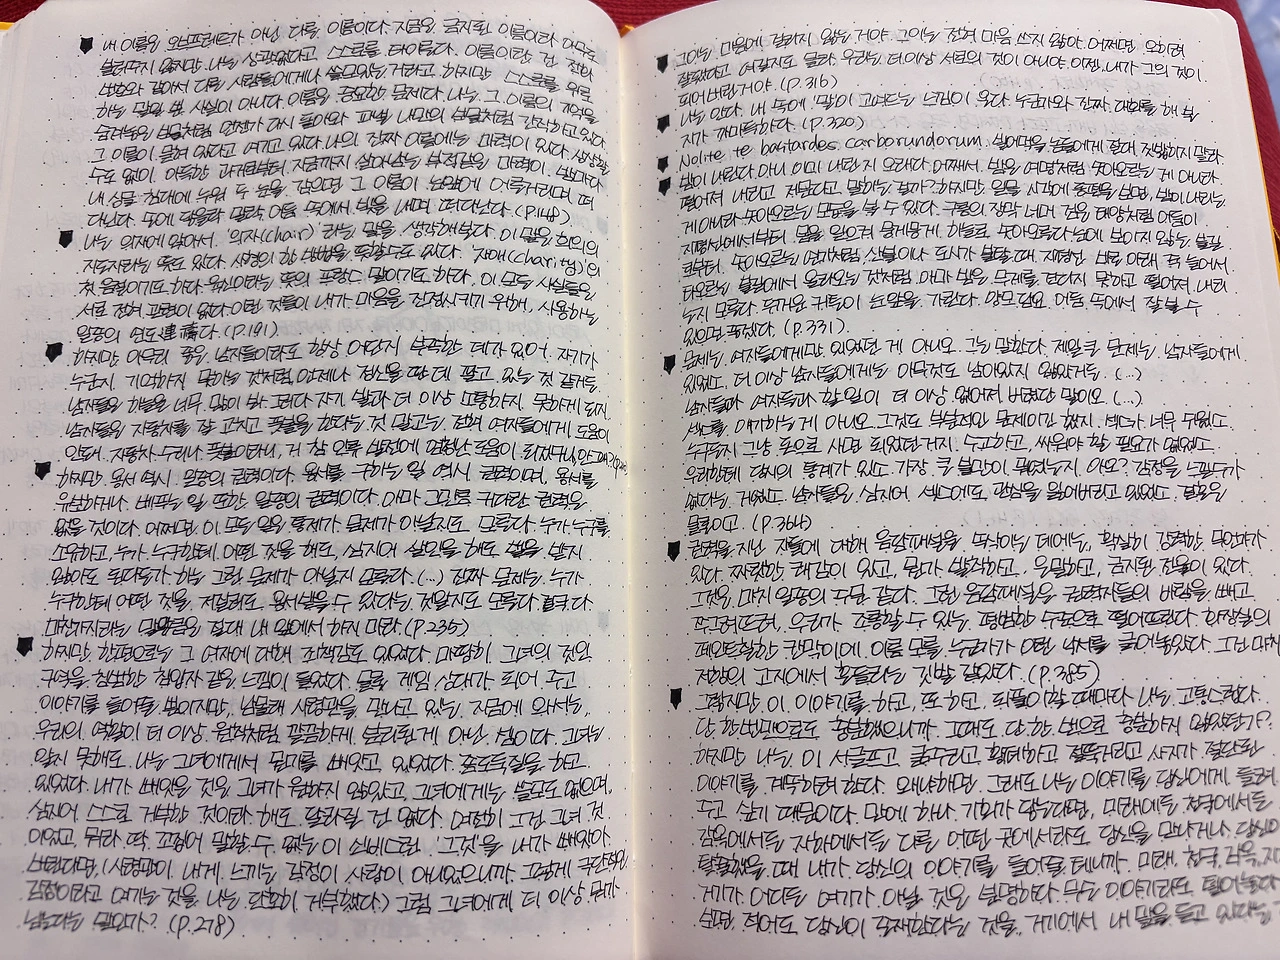 내 이름은 오브프레드가 아닌 다른 이름이다. 지금은 금지된 이름이라 아무도
불러주지 않지만. 나는 상관없다고, 스스로를 타이른다. 이름이란 건 전화
번호와 같아서 다른 사람들에게나 쓸모있는 거라고. 하지만 스스로를 위로
하는 말일 뿐 사실이 아니다. 이름은 중요한 문제다. 나는 그 이름의 기억을
숨겨놓은 보물처럼 언젠가 다시 돌아와 파낼 나만의 보물처럼 간직하고 있다.
그 이름이 묻혀 있다고 여기고 있다. 나의 진짜 이름에는 마력이 있다. 상상할
수도 없이 아득한 과거로부터 지금까지 살아남은 부적같은 마력이. 밤마다
내 싱글 침대에 누워 두 눈을 감으면 그 이름이 눈앞에 어른거리며 떠
다닌다. 손에 닿을락 말락, 어둠 속에서 빛을 내며 떠다닌다. (P.148)
나는 의자에 앉아서. '의자(chair)'라는 말을 생각해본다. 이 말은 회의의
지도자라는 뜻도 있다. 사형의 한 방법을 뜻할 수도 있다. '자애(charity)'의
첫 음절이기도 하다. 육신이라는 뜻의 프랑스 말이기도 하다. 이 모든 사실들은
서로 전혀 관련이 없다. 이런 것들이 내가 마음을 진정시키기 위해, 사용하는
일종의 연도連禱다. (P.191)
하지만 아무리 좋은 남자들이라도 항상 어딘지 부족한 데가 있어. 자기가
누군지 기억하지 못하는 것처럼 언제나 정신을 딴 데 팔고 있는 것 같거든.
남자들은 하늘을 너무 많이 봐. 그러다 자기 발과 더 이상 소통하지 못하게 되지.
남자들은 자동차를 잘 고치고 풋볼을 한다는 것 말고는, 전혀 여자들에게 도움이
안 돼. 자동차 수리나 풋볼이라니, 거 참 인류 발전에 엄청난 도움이 되겠구나, 안 그래?
하지만 용서 역시 일종의 권력이다. 용서를 구하는 일 역시 권력이며, 용서를
유보하거나 베푸는 일 또한 일종의 권력이다. 아마 그만큼 커다란 권력은
없을 것이다. 어쩌면 이 모든 일은 통제가 문제가 아닐지도 모른다. 누가 누구를
소유하고, 누가 누구한테 어떤 것을 해도, 심지어 살인을 해도 벌을 받지
않아도 된다든가 하는 그런 문제가 아닐지 모른다. (…) 진짜 문제는 누가
누구한테 어떤 것을 저질러도 용서받을 수 있다는 것일지도 모른다. 결국 다
마찬가지라는 말일랑은 절대 내 앞에서 하지 마라. (P.235)
하지만 한편으로는 그 여자에 대해 죄책감도 있었다. 마땅히 그녀의 것인
구역을 침범한 침입자 같은 느낌이 들었다. 물론 게임 상대가 되어 주고
이야기를 들어줄 뿐이지만, 남몰래 사령관을 만나고 있는 지금에 와서는,
우리의 역할이 더 이상 원칙처럼 깔끔하게 분리된 게 아닌 셈이다. 그녀는
알지 못해도 나는 그녀에게서 뭔가를 빼앗고 있었다. 좀도둑질을 하고
있었다. 내가 빼앗은 것은 그녀가 원하지 않았고, 그녀에게는 쓸모도 없으며,
심지어 스스로 거부한 것이라 해도 달라질 건 없다. 여전히 그건 그녀 것
이었고, 뭐라 딱 꼬집어 말할 수 없는 이 신비스런 '그것'을 내가 빼앗아
버린다면, (사령관이 내게 느끼는 감정이 사랑이 아니었으니까. 그렇게 극단적인
감정이라고 여기는 것을 나는 단호히 거부했다.) 그럼 그녀에게 더 이상 뭐가
남는다는 말인가? (P.278)
그이는 마음에 걸리지 않는 거야. 그이는 전혀 마음 쓰지 않아. 어쩌면 오히려
잘됐다고 여길지도 몰라. 우리는 더 이상 서로의 것이 아니야. 이젠 내가 그의 것이
되어버린거야. (P.316)
나는 안다. 내 속에 말이 고여드는 느낌이 온다. 누군가와 진짜 대화를 해 본
지가 까마득하다. (P.320)
Nolite te bastardes carborundorum. 빌어먹을 놈들에게 절대 짓밟히지 말라.
밤이 내린다. 아니 이미 내린 지 오래다. 어째서 밤은 여명처럼 솟아오르는 게 아니라
떨어져 내리고 저문다고 말하는 걸까? 하지만 일몰 시각에 동쪽을 보면, 밤이 내리는
게 아니라 솟아오르는 모습을 볼 수 있다. 구름의 장막 너머 검은 태양처럼 어둠이
지평선에서부터 몸을 일으켜 뭉게뭉게 하늘로 솟아오른다. 눈에 보이지 않는 불길
로부터 솟아오르는 연기처럼, 산불이나 도시가 불탈 때 지평선 바로 아래 죽 늘어서
타오르는 불길에서 올라오는 것처럼. 아마 밤은 무게를 견디지 못하고 떨어져 내리
는지 모른다. 두꺼운 커튼이 눈앞을 가린다. 양모 담요. 어둠 속에서 잘 볼 수
있으면 좋겠다. (P.331).
문제는 여자들에게만 있었던 게 아니오. 그는 말한다. 제일 큰 문제는 남자들에게
있었소. 더 이상 남자들에게는 아무것도 남아있지 않았거든. (…)
남자들과 여자들과 할 일이 더 이상 없어져 버렸단 말이오. (…)
섹스를 얘기하는 게 아니오. 그것도 부분적인 문제이긴 했지. 섹스가 너무 쉬웠소.
누구든지 그냥 돈으로 사면 되었던거지. 수고하고, 싸워야 할 필요가 없었소.
우리한테 당시의 통계가 있소. 가장 큰 불만이 뭐였는지 아오? 감정을 느낄 수가
없다는 거였소. 남자들은 심지어 섹스에도 관심을 잃어버리고 있었소. 결혼은
물론이고. (P.364)
권력을 지닌 자들에 대해 음담패설을 속삭이는 데에는, 확실히 강력한 무언가가
있다. 짜릿한 쾌감이 있고, 뭔가 발칙하고, 은밀하고, 금지된 전율이 있다.
그것은 마치 일종의 주문 같다. 그런 음담패설은 권력자들의 바람을 빼고
쭈그러뜨려, 우리가 조롱할 수 있는 평범한 수준으로 떨어뜨린다. 화장실의
페인트칠한 칸막이에 이름 모를 누군가가 이런 낙서를 긁어놓았다. 그건 마치
저항의 고지에서 흔들리는 깃발 같았다. (P.385)
그렇지만 이 이야기를 하고, 또 하고, 되풀이할 때마다 나는 고통스럽다.
단 한번만으로도 충분했으니까. 그때도 단 한 번으로 충분하지 않았던가?
하지만 나는 이 서글프고 굶주리고 황폐하고 절뚝거리고 사지가 절단된
이야기를 계속하려 한다. 왜냐하면 그래도 나는 이야기를 당신에게 들려
주고 싶기 때문이다. 만에 하나 기회가 닿는다면, 미래에든 천국에서든
감옥에서든 지하에서든 다른 어떤 곳에서라도 당신을 만나거나, 당신이
탈출했을 때 내가 당신의 이야기를 들어줄 테니까. 미래, 천국, 감옥, 지
거기가 어디든 여기가 아닐 것은 분명하다. 무슨 이야기라도 털어놓는다
보면, 적어도 당신이 존재한다는 것을, 거기에서 내 말을 듣고 있다는